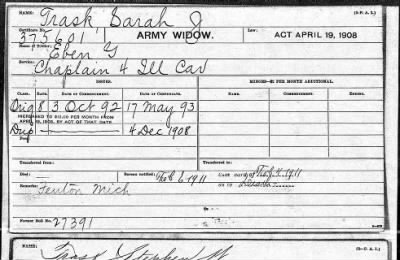 NAME: Trask, Sarah J (D-P. A. I.)
Certificate No. 375601 ARMY WIDOW. Law ACT APRIL 19, 1908
Name of Soldier: Eben G
Service: Chaplain 4 Ill Cav
ISSUES. MINORS—$2 PER MONTH ADDITIONAL.
CLASS. RATE. DATE OF COMMENCEMENT. DATE OF CERTIFICATE. NAMES. DATE OF COMMENCEMENT.
Orig 8 3 Oct 92 17 May 93
INCREASED TO $12.00 PER MONTH FROM
APRIL 19, 1908, BY ACT OF THAT DATE.
Dup 4 Dec 1908
Transferred from: Transferred to:
Died: Bureau notified: Feb 6-1911
Remarks: Fenton Mich
Former Roll No.
27391
NAME: Trask Stephen W (D-P. A. I.)